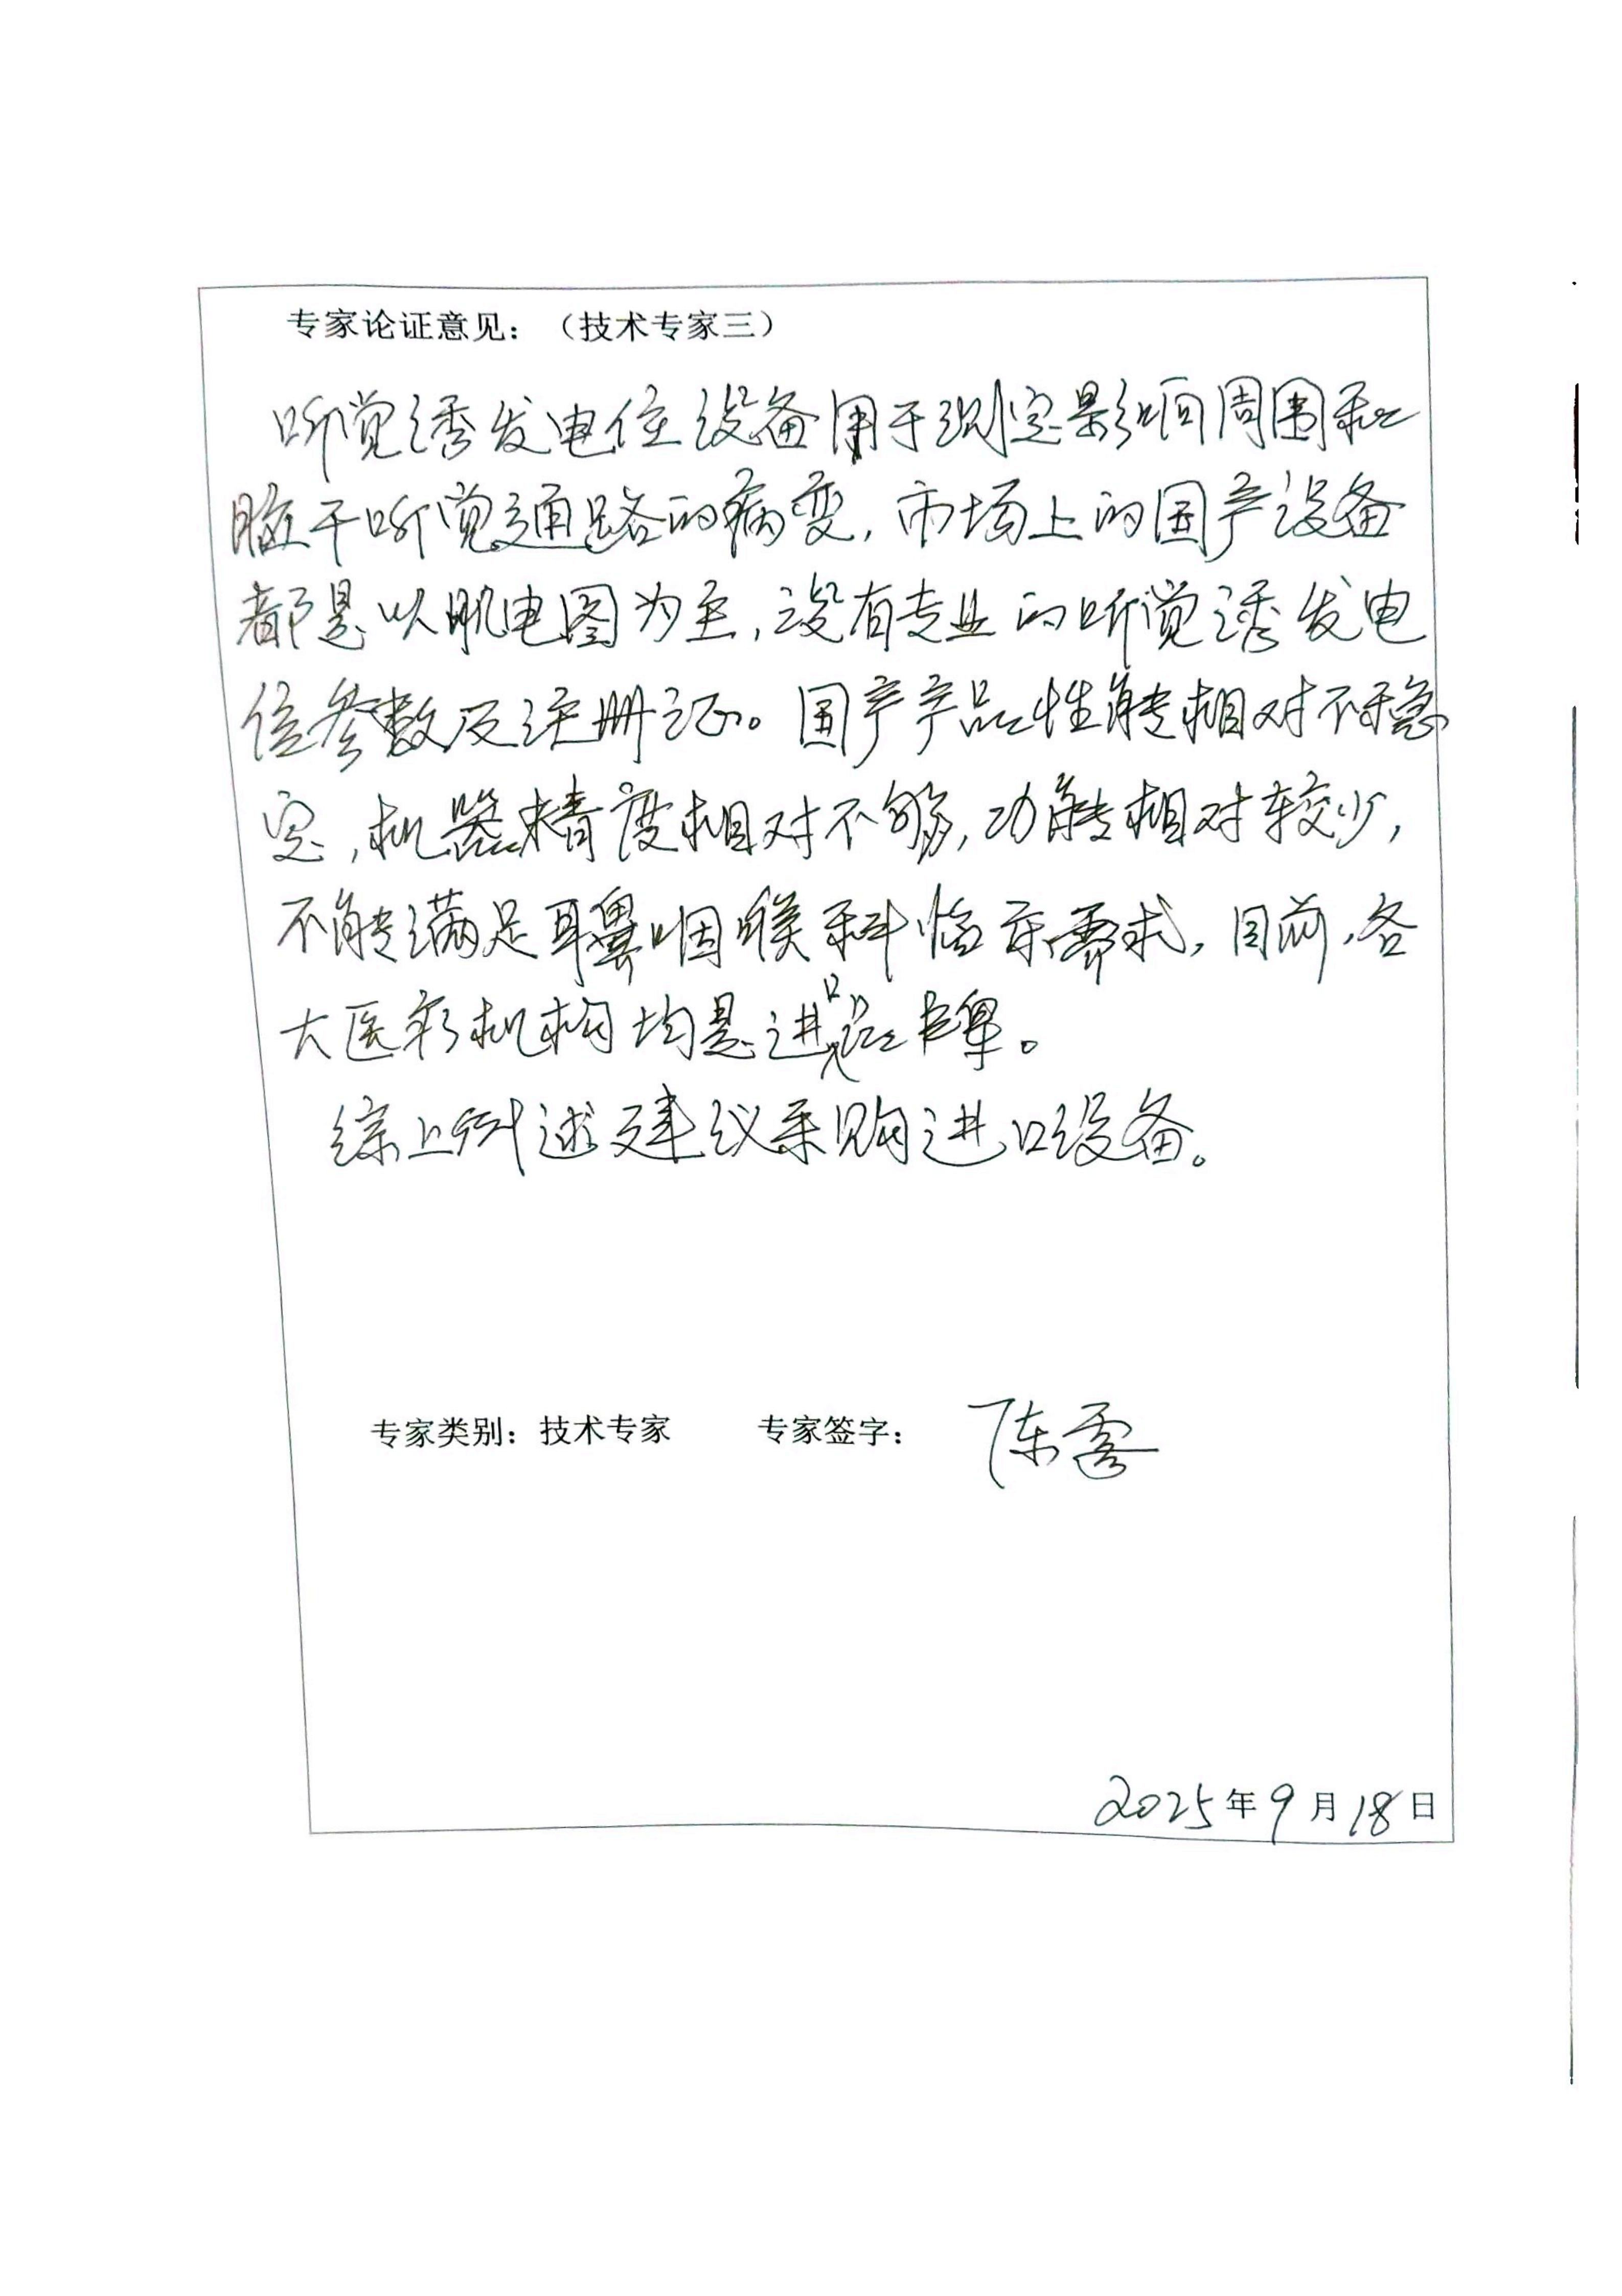 专家论证意见：（技术专家三）
听觉诱发电位设备用于测定影响周围和
脑干听觉通路的病变，市场上的国产设备
都是以肌电图为主，没有专业的听觉诱发电
位参数及注册证。国产产品性能相对不稳
定，机器精度相对不够，功能相对较少，
不能满足耳鼻咽喉科临床需求，目前，各
大医疗机构均是进口品牌。
综上所述建议采购进口设备。
专家类别：技术专家 专家签字：陈露
2025年9月18日